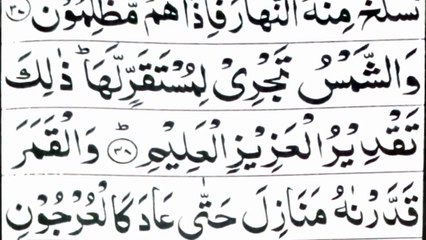 نَسْلَخُ مِنْهُ النَّهَارَ فَاِذَا هُمْ مُّظْلِمُوْنَ ۝۳۷
وَالشَّمْسُ تَجْرِیْ لِمُسْتَقَرٍّ لَّهَا ؕ ذٰلِكَ
تَقْدِیْرُ الْعَزِیْزِ الْعَلِیْمِ ؕ۝۳۸ وَالْقَمَرَ
قَدَّرْنٰهُ مَنَازِلَ حَتّٰی عَادَ كَالْعُرْجُوْنِ